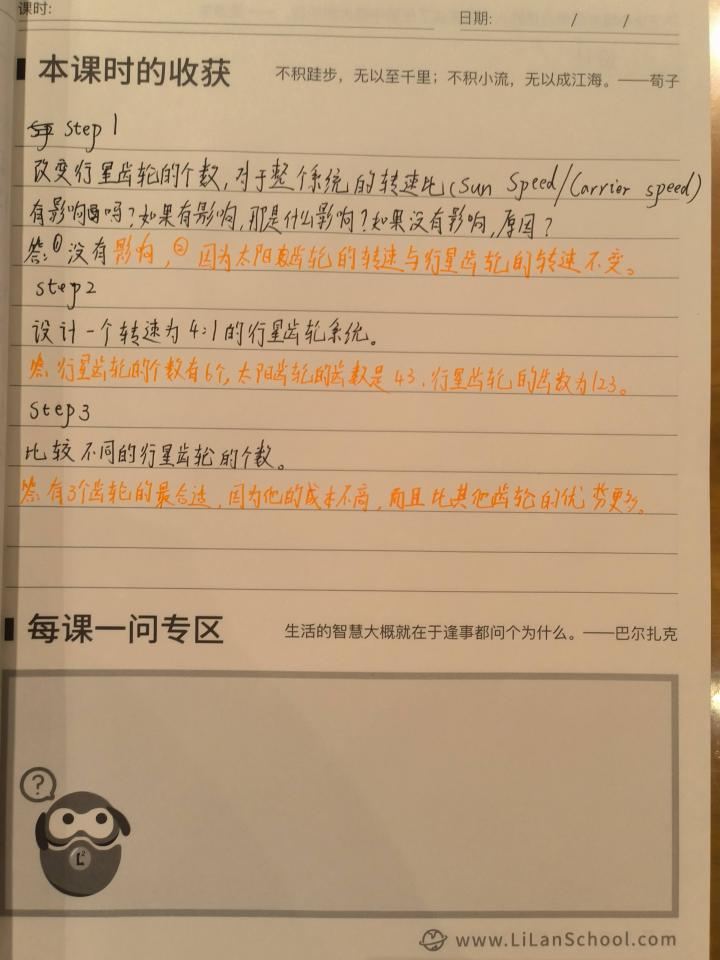 课时:
日期: / /
本课时的收获 不积跬步，无以至千里；不积小流，无以成江海。——荀子
step 1
改变行星齿轮的个数，对于整个系统的转速比(Sun Speed/Carrier speed)
有影响吗？如果有影响，那是什么影响？如果没有影响，原因？
答：①没有影响，②因为太阳齿轮的转速与行星齿轮的转速不变。
step2
设计一个转速为4:1的行星齿轮系统。
答：行星齿轮的个数有6个，太阳齿轮的齿数是43，行星齿轮的齿数为123。
step3
比较不同的行星齿轮的个数。
答：有3个齿轮的最合适，因为他的成本不高，而且比其他齿轮的优势更多。
每课一问专区 生活的智慧大概就在于逢事都问个为什么。——巴尔扎克
?
L²
www.LiLanSchool.com